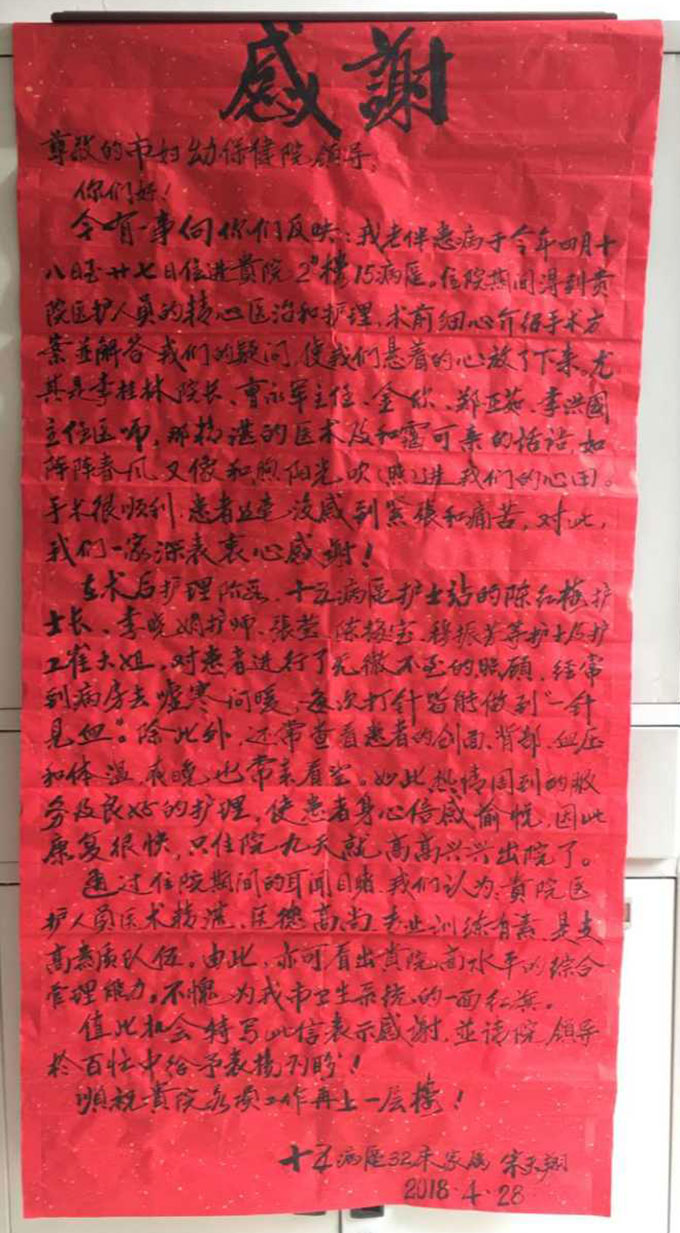 感謝
尊敬的市妇幼保健院领导:
你们好!
今有一事向你们反映:我老伴患病于今年四月十
八日至廿七日住进贵院2#楼15病区。住院期间得到贵
院医护人员的精心医治和护理,术前细心介绍手术方
案並解答我们的疑问,使我们悬着的心放了下来。尤
其是李桂林院长、曹永军主任、金欣、郑亚茹、李洪國
主住医师,那精湛的医术及和霭可亲的话语,如
阵阵春风,又像和煦阳光吹(照)进我们的心田。
手术很顺利,患者并没感到紧张和痛苦,对此,
我们一家深表衷心感谢!
在术后护理阶段,十五病区护士站的陈红梅护
士长、李晓娟护师、張莹、陈梅宝、穆振芳等护士及护
工崔大姐,对患者进行了无微不至的照顾,经常
到病房去嘘寒问暖,每次打针皆能做到"一针
见血"。除此外,还常查看患者的创面、背部、血压
和体温,夜晚也常来看望。如此热情周到的服
务及良好的护理,使患者身心倍感愉悦,因此
康复很快,只住院九天就高高兴兴出院了。
通过住院期间的耳闻目睹,我们认为,贵院医
护人员医术精湛、医德高尚、专业训练有素,是支
高素质队伍。由此,亦可看出贵院高水平的综合
管理能力。不愧为我市卫生系统的一面红旗。
值此机会特写此信表示感谢,並请院领导
於百忙中给予表扬为盼!
顺祝贵院各项工作再上一层楼!
十五病区32床家属 宋天翔
2018·4·28